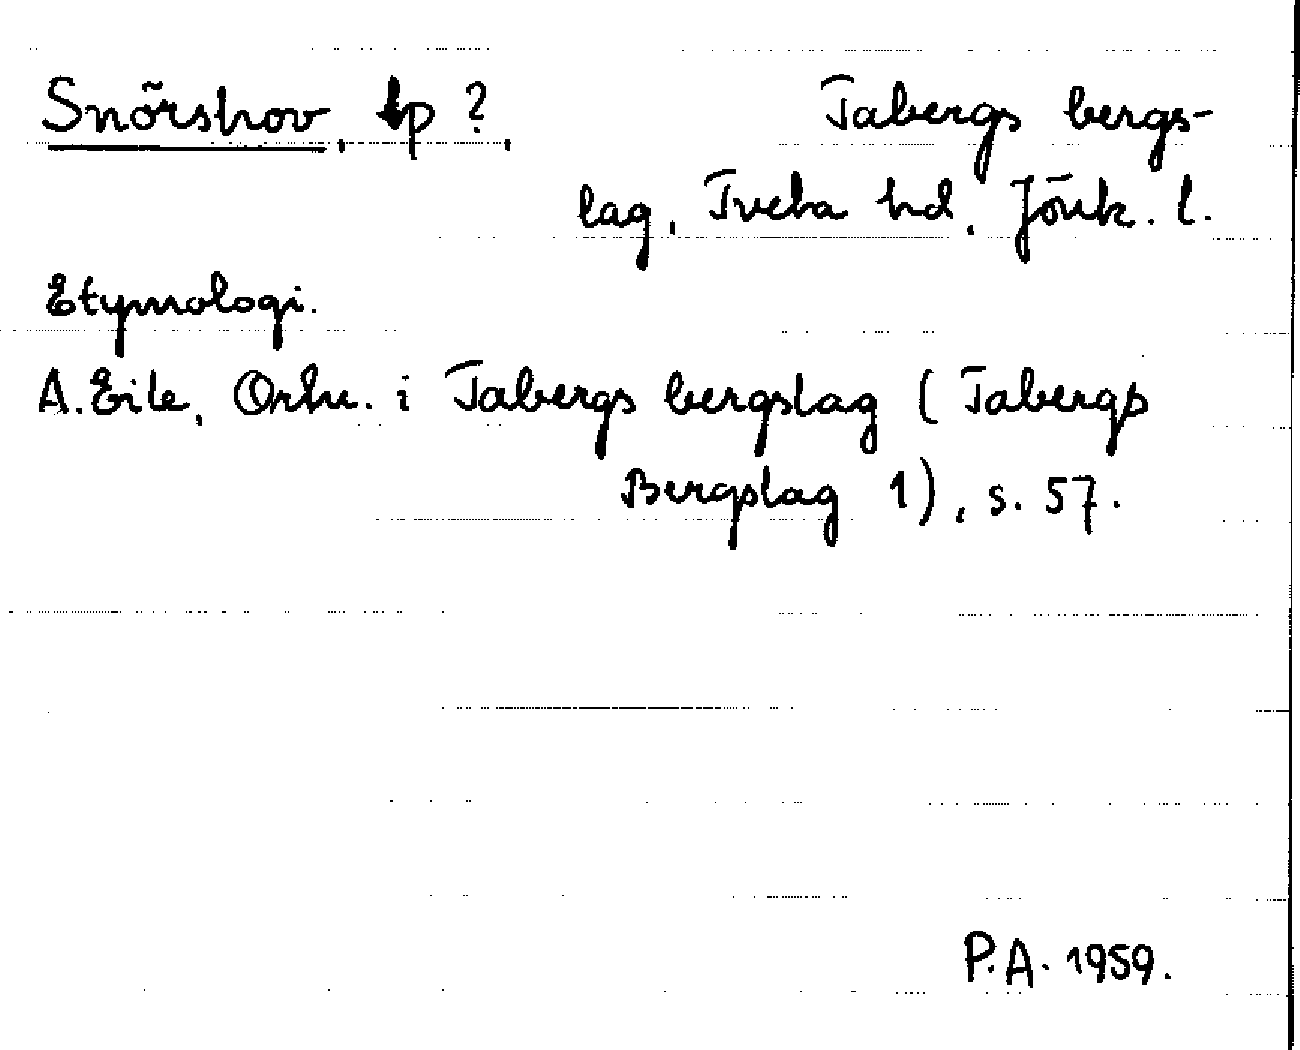 Snörshov, tp ?, Tabergs bergs-
lag, Tveta hd, Jönk. l.
Etymologi.
A. Eile, Ortn. i Tabergs bergslag (Tabergs
Bergslag 1), s. 57.
P.A. 1959.